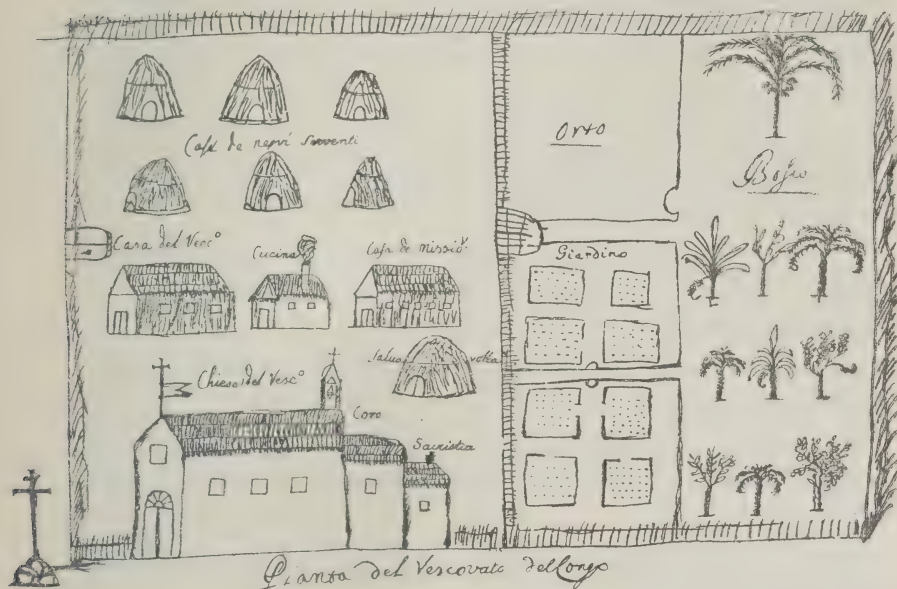 Case de negri serventi
Orto
Bosco
Casa del Vesc.º
Cucina
Case de missio.
Giardino
Chiesa del Vesc.º
Coro
Sacristia
Pianta del Vescovato del Congo